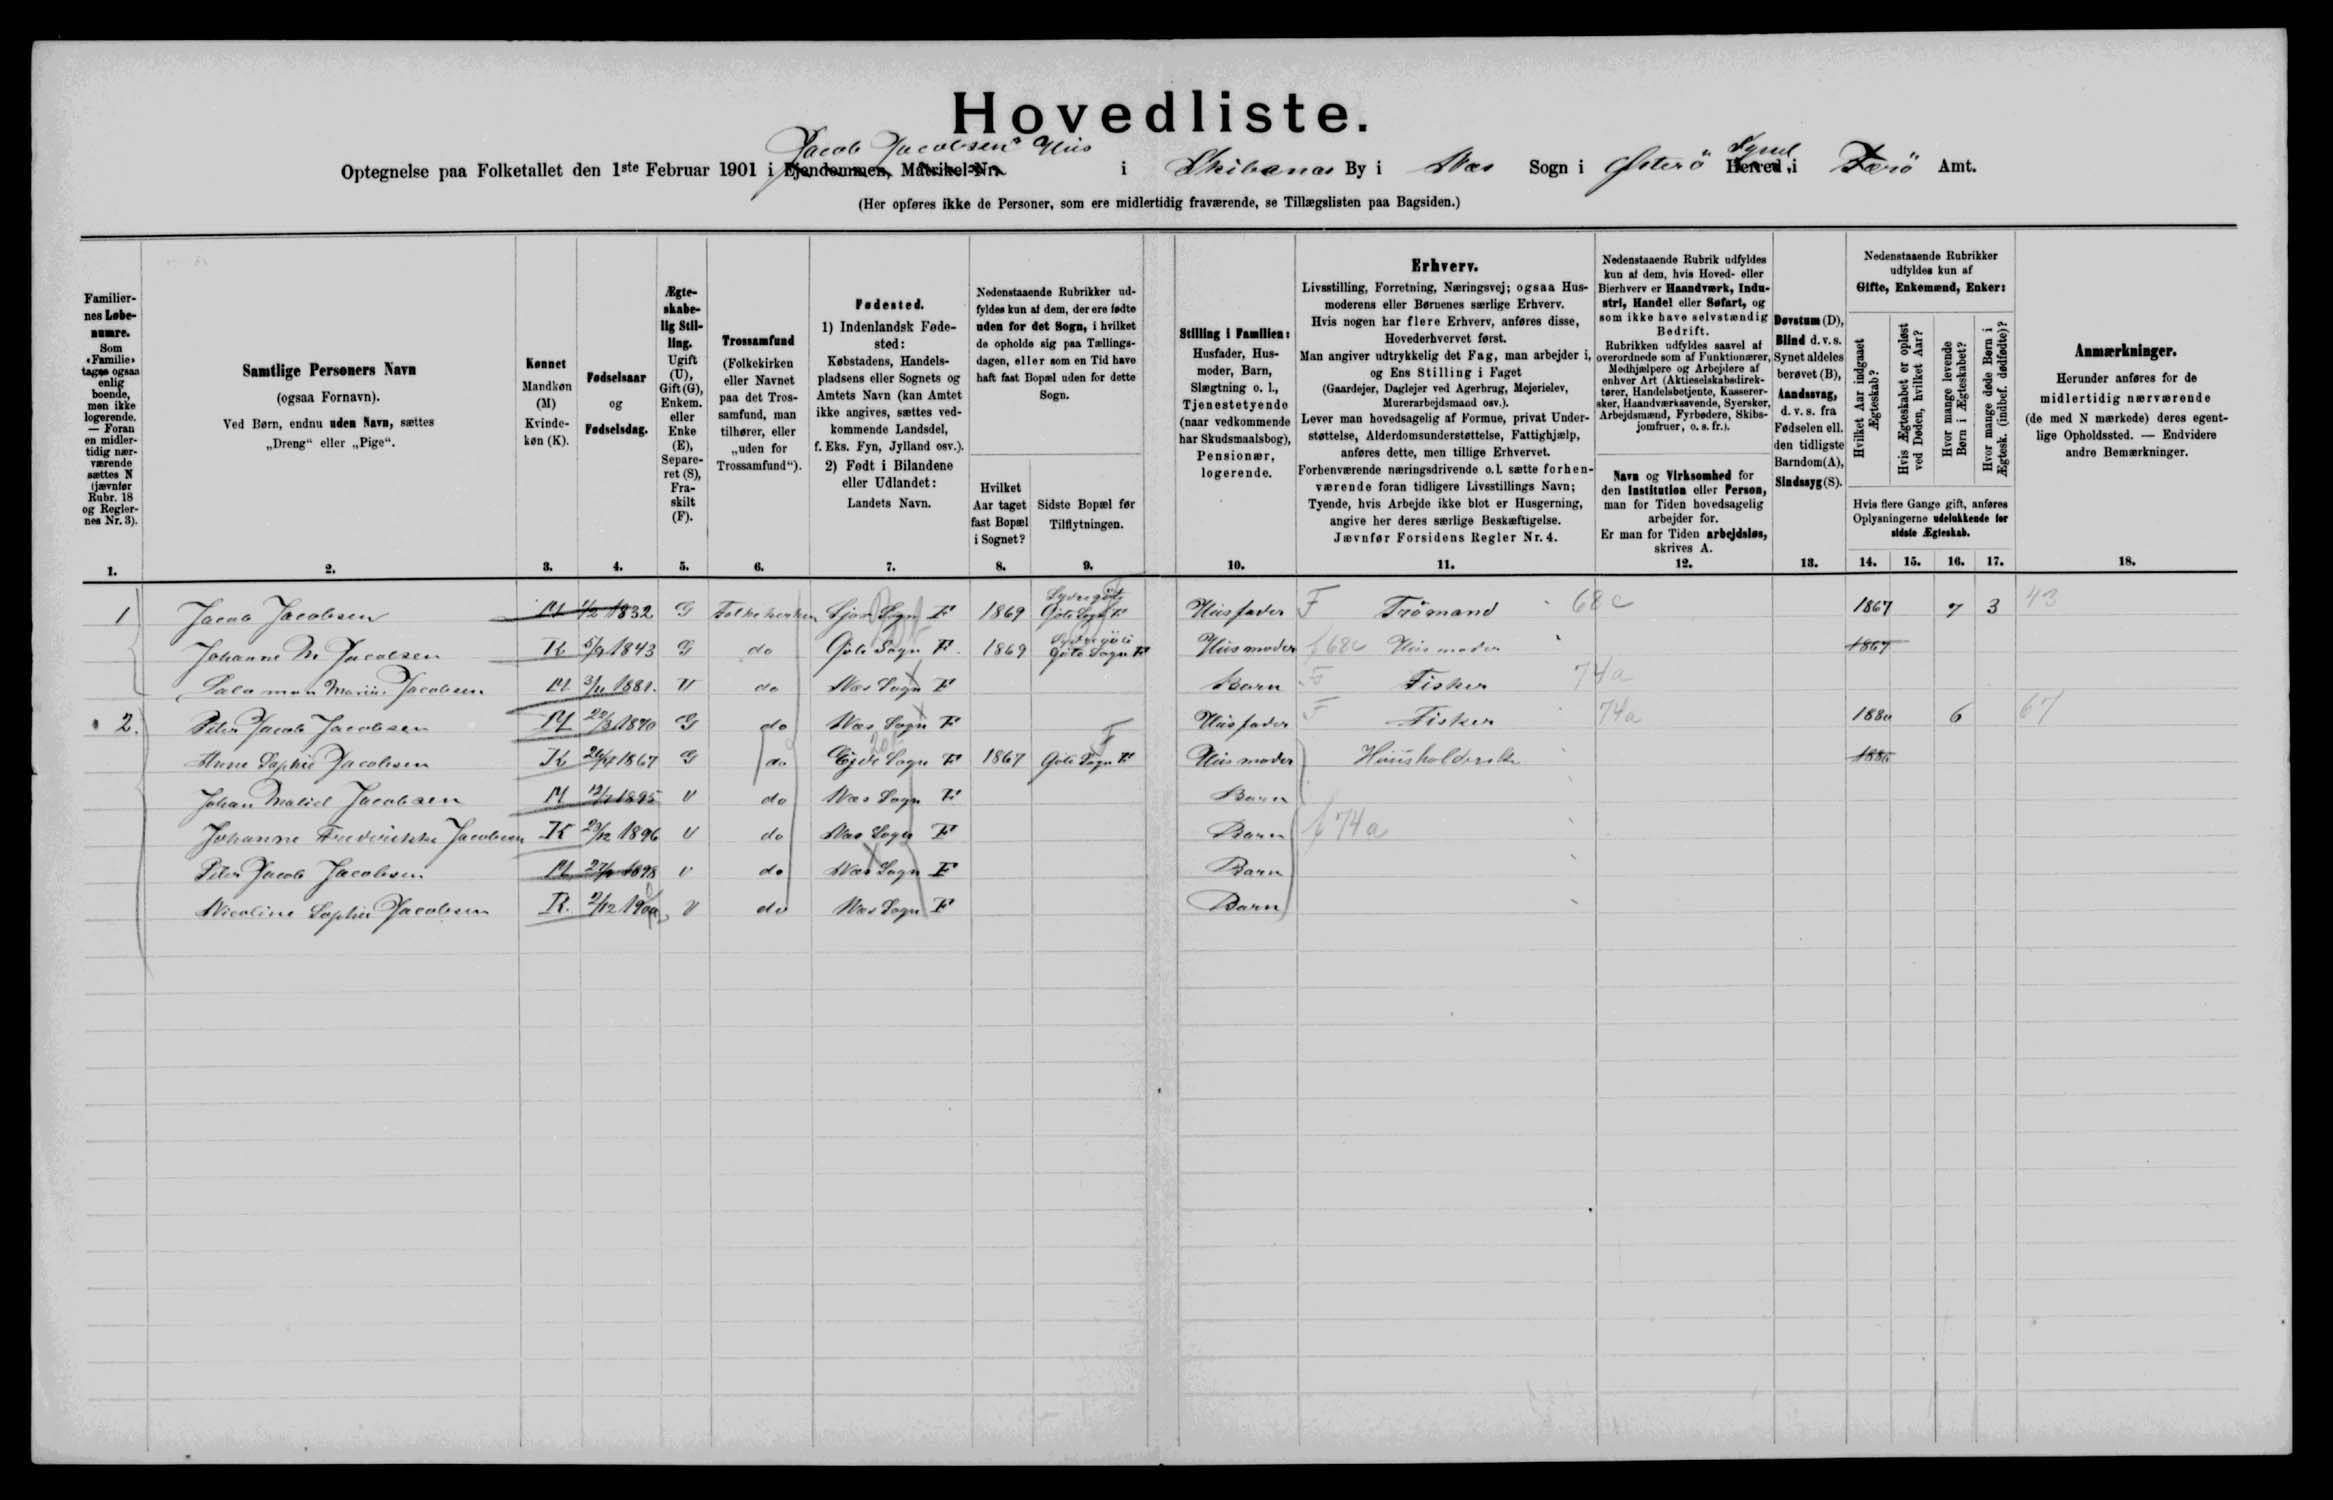 Hovedliste.
Jacob Jacobsens Hus
Syssel
Optegnelse paa Folketallet den 1ste Februar 1901 i Ejendommen, Matrikel-Nr. i Skibanæs By i Næs Sogn i Østerö Herred i Færö Amt.
(Her opføres ikke de Personer, som ere midlertidig fraværende, se Tillægslisten paa Bagsiden.)
Familiernes Løbenumre.
Som «Familie» tages ogsaa enlig boende, men ikke logerende. — Foran en midlertidig nærværende sættes N (jævnfør Rubr. 18 og Reglernes Nr. 3).
1.
Samtlige Personers Navn
(ogsaa Fornavn).
Ved Børn, endnu uden Navn, sættes
„Dreng“ eller „Pige“.
2.
Kønnet
Mandkøn (M)
Kvindekøn (K).
3.
Fødselsaar
og
Fødselsdag.
4.
Ægteskabelig Stilling.
Ugift (U), Gift (G), Enkem. eller Enke (E), Separeret (S), Fraskilt (F).
5.
Trossamfund
(Folkekirken eller Navnet paa det Trossamfund, man tilhører, eller „uden for Trossamfund“).
6.
Fødested.
1) Indenlandsk Fødested:
Købstadens, Handelspladsens eller Sognets og Amtets Navn (kan Amtet ikke angives, sættes vedkommende Landsdel, f. Eks. Fyn, Jylland osv.).
2) Født i Bilandene eller Udlandet:
Landets Navn.
7.
Nedenstaaende Rubrikker udfyldes kun af dem, der ere fødte uden for det Sogn, i hvilket de opholde sig paa Tællingsdagen, eller som en Tid have haft fast Bopæl uden for dette Sogn.
Hvilket Aar taget fast Bopæl i Sognet?
8.
Sidste Bopæl før Tilflytningen.
9.
Stilling i Familien:
Husfader, Husmoder, Barn, Slægtning o. l., Tjenestetyende (naar vedkommende har Skudsmaalsbog), Pensionær, logerende.
10.
Erhverv.
Livsstilling, Forretning, Næringsvej; ogsaa Husmoderens eller Børnenes særlige Erhverv.
Hvis nogen har flere Erhverv, anføres disse, Hovederhvervet først.
Man angiver udtrykkelig det Fag, man arbejder i, og Ens Stilling i Faget
(Gaardejer, Daglejer ved Agerbrug, Mejerielev, Murerarbejdsmand osv.).
Lever man hovedsagelig af Formue, privat Understøttelse, Alderdomsunderstøttelse, Fattighjælp, anføres dette, men tillige Erhvervet.
Forhenværende næringsdrivende o.l. sætte forhenværende foran tidligere Livsstillings Navn;
Tyende, hvis Arbejde ikke blot er Husgerning, angive her deres særlige Beskæftigelse.
Jævnfør Forsidens Regler Nr. 4.
11.
Nedenstaaende Rubrik udfyldes kun af dem, hvis Hoved- eller Bierhverv er Haandværk, Industri, Handel eller Søfart, og som ikke have selvstændig Bedrift.
Rubrikken udfyldes saavel af overordnede som af Funktionærer, Medhjælpere og Arbejdere af enhver Art (Aktieselskabsdirektører, Handelsbetjente, Kasserersker, Haandværkssvende, Syersker, Arbejdsmænd, Fyrbødere, Skibsjomfruer, o. s. fr.).
Navn og Virksomhed for den Institution eller Person, man for Tiden hovedsagelig arbejder for.
Er man for Tiden arbejdsløs, skrives A.
12.
Døvstum (D),
Blind d. v. s. Synet aldeles berøvet (B),
Aandssvag, d. v. s. fra Fødselen ell. den tidligste Barndom (A),
Sindssyg (S).
13.
Nedenstaaende Rubrikker udfyldes kun af
Gifte, Enkemænd, Enker:
Hvilket Aar indgaaet Ægteskab?
Hvis Ægteskabet er opløst ved Døden, hvilket Aar?
Hvor mange levende Børn i Ægteskabet?
Hvor mange døde Børn i Ægtesk. (indbef. dødfødte)?
Hvis flere Gange gift, anføres Oplysningerne udelukkende for sidste Ægteskab.
14. 15. 16. 17.
Anmærkninger.
Herunder anføres for de midlertidig nærværende (de med N mærkede) deres egentlige Opholdssted. — Endvidere andre Bemærkninger.
18.
1 Jacob Jacobsen M 1/2 1832 G Folkekirken Sjov Sogn F 1869 Sydregöte Göte Sogn F Husfader F Trömand 68c 1867 7 3 43
Johanne M Jacobsen K 5/9 1843 G do Göte Sogn F. 1869 Sydregöte Göte Sogn F Husmoder f 68c Husmoder 1867
Salomon Marius Jacobsen M 3/11 1881. U do Næs Sogn F Barn F Fisker 74a
2. Peter Jacob Jacobsen M 20/3 1870 G do Næs Sogn F Husfader F Fisker 74a 6 67
Anne Sophie Jacobsen K 1867 G do Ejde Sogn F 1867 Göte Sogn F Husmoder Huusholderske
Johan Jacobsen M 1895 U do Næs Sogn F Barn
Johanne Frederikke Jacobsen K 23/12 1896 U do Næs Sogn F Barn f 74a
Peter Jacob Jacobsen M 1898 U do Næs Sogn F Barn
Nicoline Sophie Jacobsen K. 9/12 1900 U do Næs Sogn F Barn